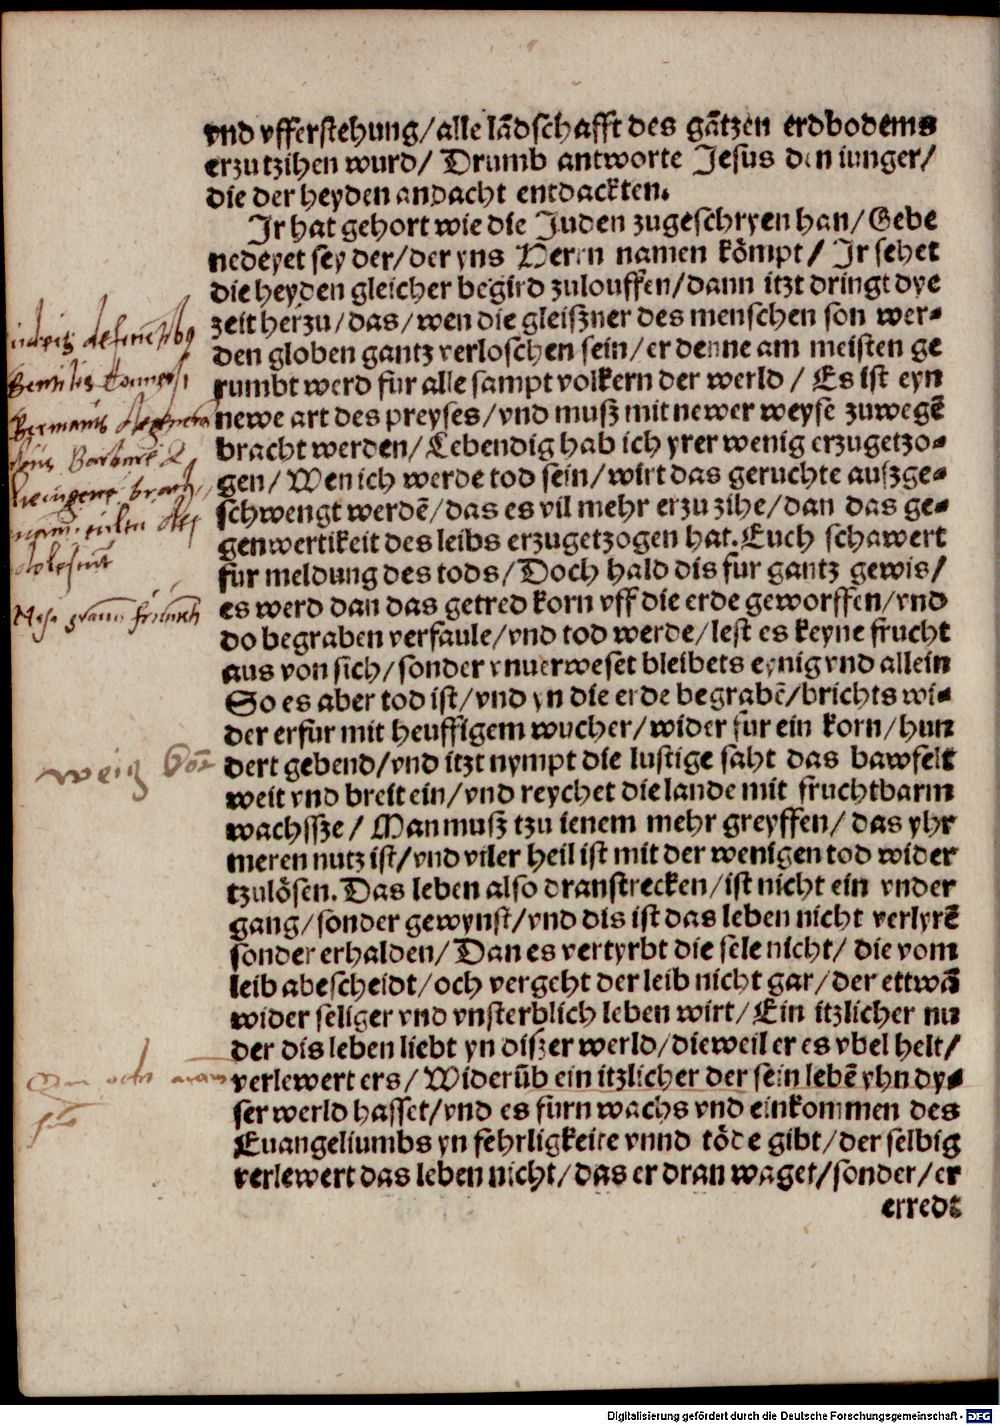 vnd vfferstehung/alle lãdschafft des gãtzen erdbodems
erzutzihen wurd/ Drumb antworte Jesus den iunger/
die der heyden andacht entdackten.
Jr hat gehort wie die Juden zugeschryen han/Gebe
nedeyet sey der/der yns Herrn namen kömpt/ Jr sehet
die heyden gleicher begird zulouffen/dann itzt dringt dye
zeit herzu/das/wen die gleißner des menschen son wer-
den globen gantz verloschen sein/er denne am meisten ge
rumbt werd fur alle sampt volkern der werld / Es ist eyn
newe art des preyses/vnd muß mit newer weyse zuwegẽ
bracht werden/Lebendig hab ich yrer wenig erzugetzo-
gen/Wen ich werde tod sein/wirt das geruchte außge-
schwengt werdẽ/das es vil mehr erzu zihe/dan das ge-
genwertikeit des leibs erzugetzogen hat.Euch schawert
fur meldung des tods/Doch hald dis fur gantz gewis/
es werd dan das getred korn vff die erde geworffen/vnd
do begraben verfaule/vnd tod werde/lest es keyne frucht
aus von sich/sonder vnuerweset bleibets eynig vnd allein
So es aber tod ist/vnd yn die erde begrabẽ/brichts wi-
der erfur mit heuffigem wucher/wider fur ein korn/hun
dert gebend/vnd itzt nympt die lustige saht das bawfelt
weit vnd breit ein/vnd reychet die lande mit fruchtbarm
wachsße/ Man muß tzu ienem mehr greyffen/das yhr
meren nutz ist/vnd viler heil ist mit der wenigen tod wider
tzulösen.Das leben also dranstrecken/ist nicht ein vnder
gang/sonder gewynst/vnd dis ist das leben nicht verlyrẽ
sonder erhalden/Dan es vertyrbt die sele nicht/ die vom
leib abescheidt/och vergeht der leib nicht gar/der ettwã
wider seliger vnd vnsterblich leben wirt/Ein itzlicher nu
der dis leben liebt yn disßer werld/dieweil er es vbel helt/
verlewert ers/Widerũb ein itzlicher der sein lebẽ yhn dy-
ser werld hasset/vnd es furn wachs vnd einkommen des
Euangeliumbs yn fehrligkeite vnnd töde gibt/der selbig
verlewert das leben nicht/das er dran waget/sonder/er
erredt
Digitalisierung gefördert durch die Deutsche Forschungsgemeinschaft - DFG